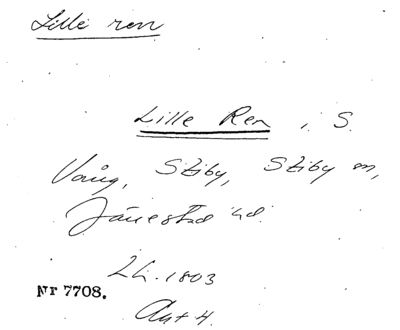 Lille ren
Lille Ren i S.
Vång, Stiby, Stiby sn,
Järestad hd.
1803
Nr 7708.
Akt 4.